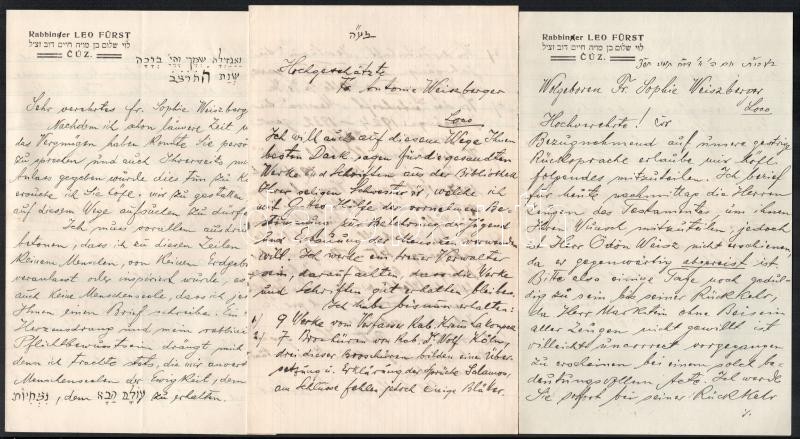 Rabbiner LEO FÜRST
לוי שלום בן מויה חיים דוב זציל
ČŮZ.
שנת
Sehr verehrtes Fr. Sophie Weiszberg
Nachdem ich schon längere Zeit
das Vergnügen haben konnte Sie persö
zu sprechen und auch Ihrerseits
Anlass gegeben würde dies tun zu k
ersuche ich Sie höfl. mir zu gestatten
auf diesem Wege aufsuchen zu dürfe
Ich muss vorallen ausdrü
betonen, dass ich zu diesen Zeilen
keinem Menschen, von keinen Erdgebo
veranlasst oder inspiriert würde,
auch keine Menschenseele, dass ich je
Ihnen einen Brief schreibe. Ein
Herzensdrang und mein rabbin
Pflichtbewusstsein drängt mich
denn ich trachte stets, die mir anvert
Menschenseelen der Ewigkeit, dem
נצחיות, dem עולם הבא zu erhalten.
בע״ה
Hochgeschätzte
Fr. Antonie Weiszberger
Loco
Ich will auch auf diesem Wege Ihnen
besten Dank sagen für die gesandten
Werke und Schriften aus der Bibliothek
Ihrer seligen Schwester, welche ich
mit Gottes Hilfe der vornehmen Be-
stimmung für Belehrung der Jugend
und Erbauung der Menschen verwenden
will. Ich werde ein treuer Verwalter
sein, darauf achten, dass die Werke
und Schriften gut erhalten bleiben.
Ich habe bis nun erhalten:
1) 9 Werke vom Verfasser Rab.
2) 7 Broschüren von Rab. Dr. Wolf Köln,
drei dieser Broschüren bilden eine Über-
setzung u. Erklärung der Sprüche Salamos,
am Schlusse fehlen jedoch einige Blätter.
Rabbiner LEO FÜRST
לוי שלום בן מויה חיים דוב זציל
ČŮZ.
Wolgeboren Fr. Sophie Weiszberger
Loco
Hochverehrte!
Bezugnehmend auf unsere gestrige
Rücksprache erlaube mir höfl.
folgendes mitzuteilen. Ich berief
für heute nachmittag die Herren
Zeugen des Testamentes, um ihnen
Ihren Wunsch mitzuteilen; jedoch
ist Herr Ödön Weisz nicht erschienen,
da er gegenwärtig abgereist ist
Bitte also einige Tage noch gedul-
dig zu sein bis seiner Rückkehr,
da Herr ohne Beisein
aller Zeugen nicht gewillt ist
villeicht uncorrect vorgegangen
zu erscheinen bei einem solch be-
deutungsvollem Acte. Ich werde
Sie sofort bei seiner Rückkehr